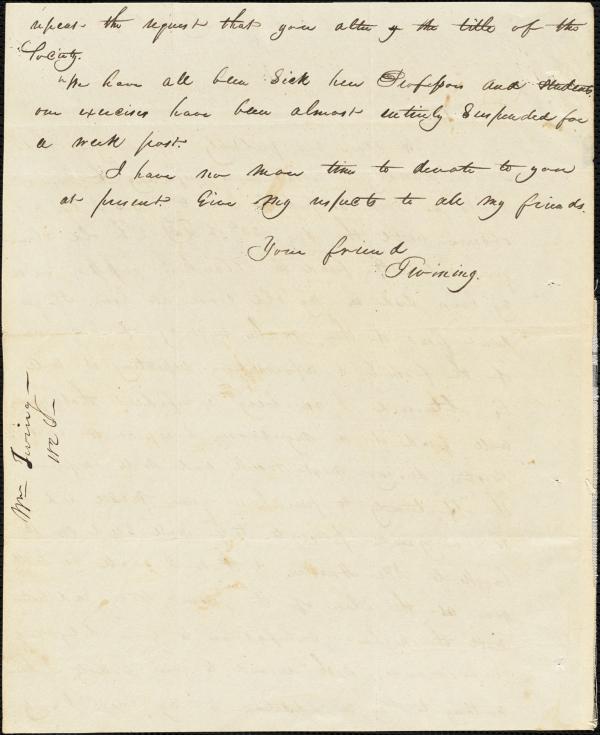 repeat the request that you alter y the title of the
Society.
We have all been Sick here Professors and students,
our exercises have been almost entirely Suspended for
a week past.
I have no more time to devote to you
at present. Give my respects to all my friends.
Your friend
Twining.
Wm Twing